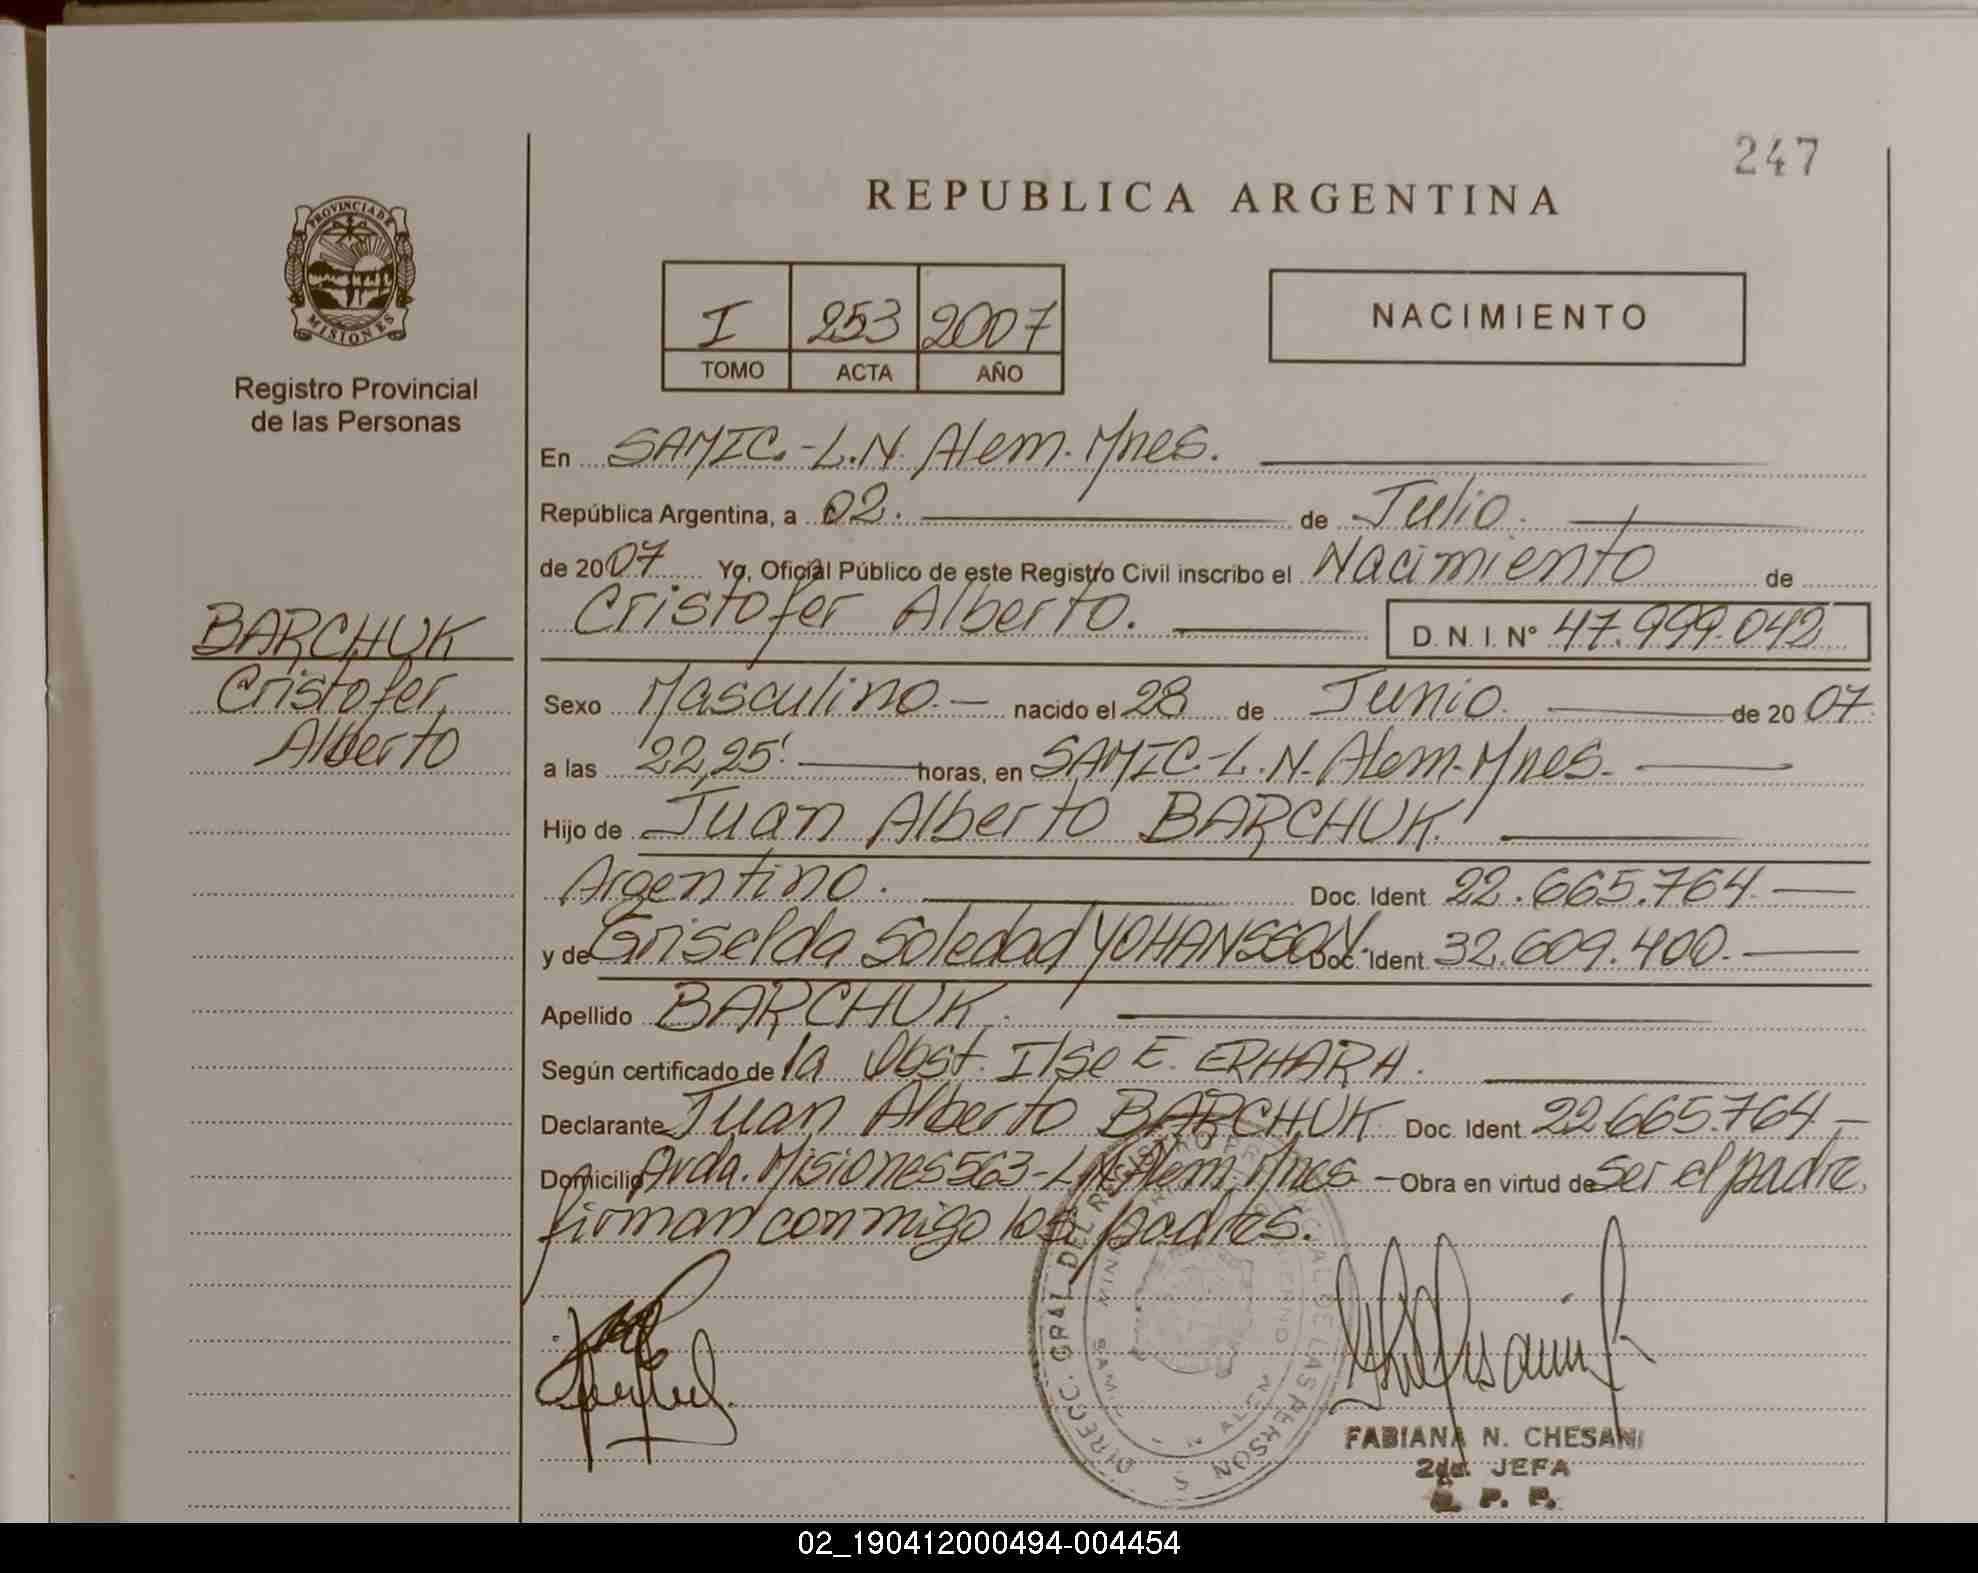 247
REPUBLICA ARGENTINA
PROVINCIA DE
MISIONES
Registro Provincial
de las Personas
I 253 2007
TOMO ACTA AÑO
NACIMIENTO
En SAMIC.-L.N. Alem. Mnes.
República Argentina, a 02. de Julio.
de 2007 Yo, Oficial Público de este Registro Civil inscribo el Nacimiento de
Cristofer Alberto. D.N.I. Nº 47.999.042
BARCHUK
Cristofer
Alberto
Sexo Masculino.- nacido el 28 de Junio. de 2007
a las 22,25' horas, en SAMIC.-L.N. Alem.Mnes.-
Hijo de Juan Alberto BARCHUK.
Argentino. Doc. Ident. 22.665.764.
y de Griselda Soledad YOHANSSON. Doc. Ident. 32.609.400.-
Apellido BARCHUK.
Según certificado de la Obst. Ilse E. ERHARH.
Declarante Juan Alberto BARCHUK Doc. Ident. 22.665.764 -
Domicilio Avda. Misiones 563-L.N. Alem. Mnes. - Obra en virtud de Ser el padre.
firman conmigo los padres.
DIRECC. GRAL. DEL REGISTRO PROVINCIAL DE LAS PERSONAS
FABIANA N. CHESANI
2da. JEFA
R. P. P.
02_190412000494-004454